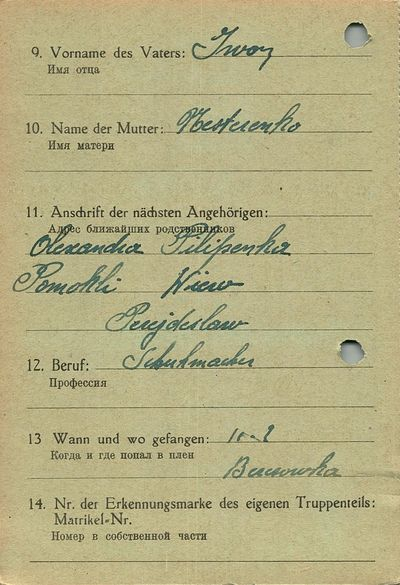 9. Vorname des Vaters: Iwon
Имя отца
10. Name der Mutter: Nesterenko
Имя матери
11. Anschrift der nächsten Angehörigen:
Адрес ближайших родственников
Olexandra Pilipenka
Pomokli Kiew
Perejdeslaw
12. Beruf: Schuhmacher
Профессия
13 Wann und wo gefangen:
Когда и где попал в плен
14. Nr. der Erkennungsmarke des eigenen Truppenteils:
Matrikel-Nr.
Номер в собственной части